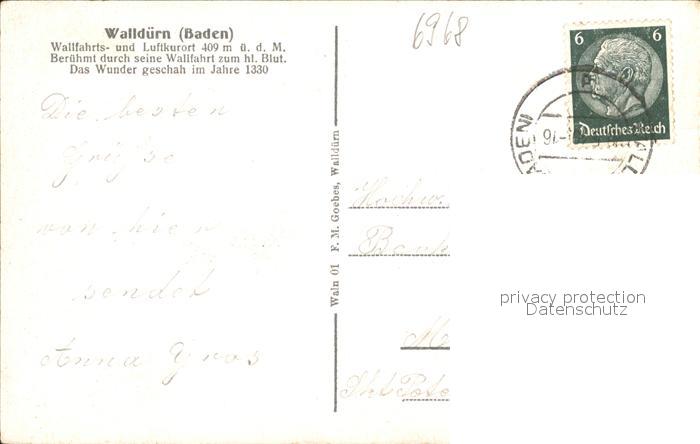 Walldürn (Baden)
Wallfahrts- und Luftkurort 409 m ü. d. M.
Berühmt durch seine Wallfahrt zum hl. Blut.
Das Wunder geschah im Jahre 1330
6968
6 6
Deutsches Reich
ADEN)
WALL
Die besten
Grüße
von hier
sendet
Anna Gros
Waln 01 F. M. Goebes, Walldürn
Hochw.
M
privacy protection
Datenschutz